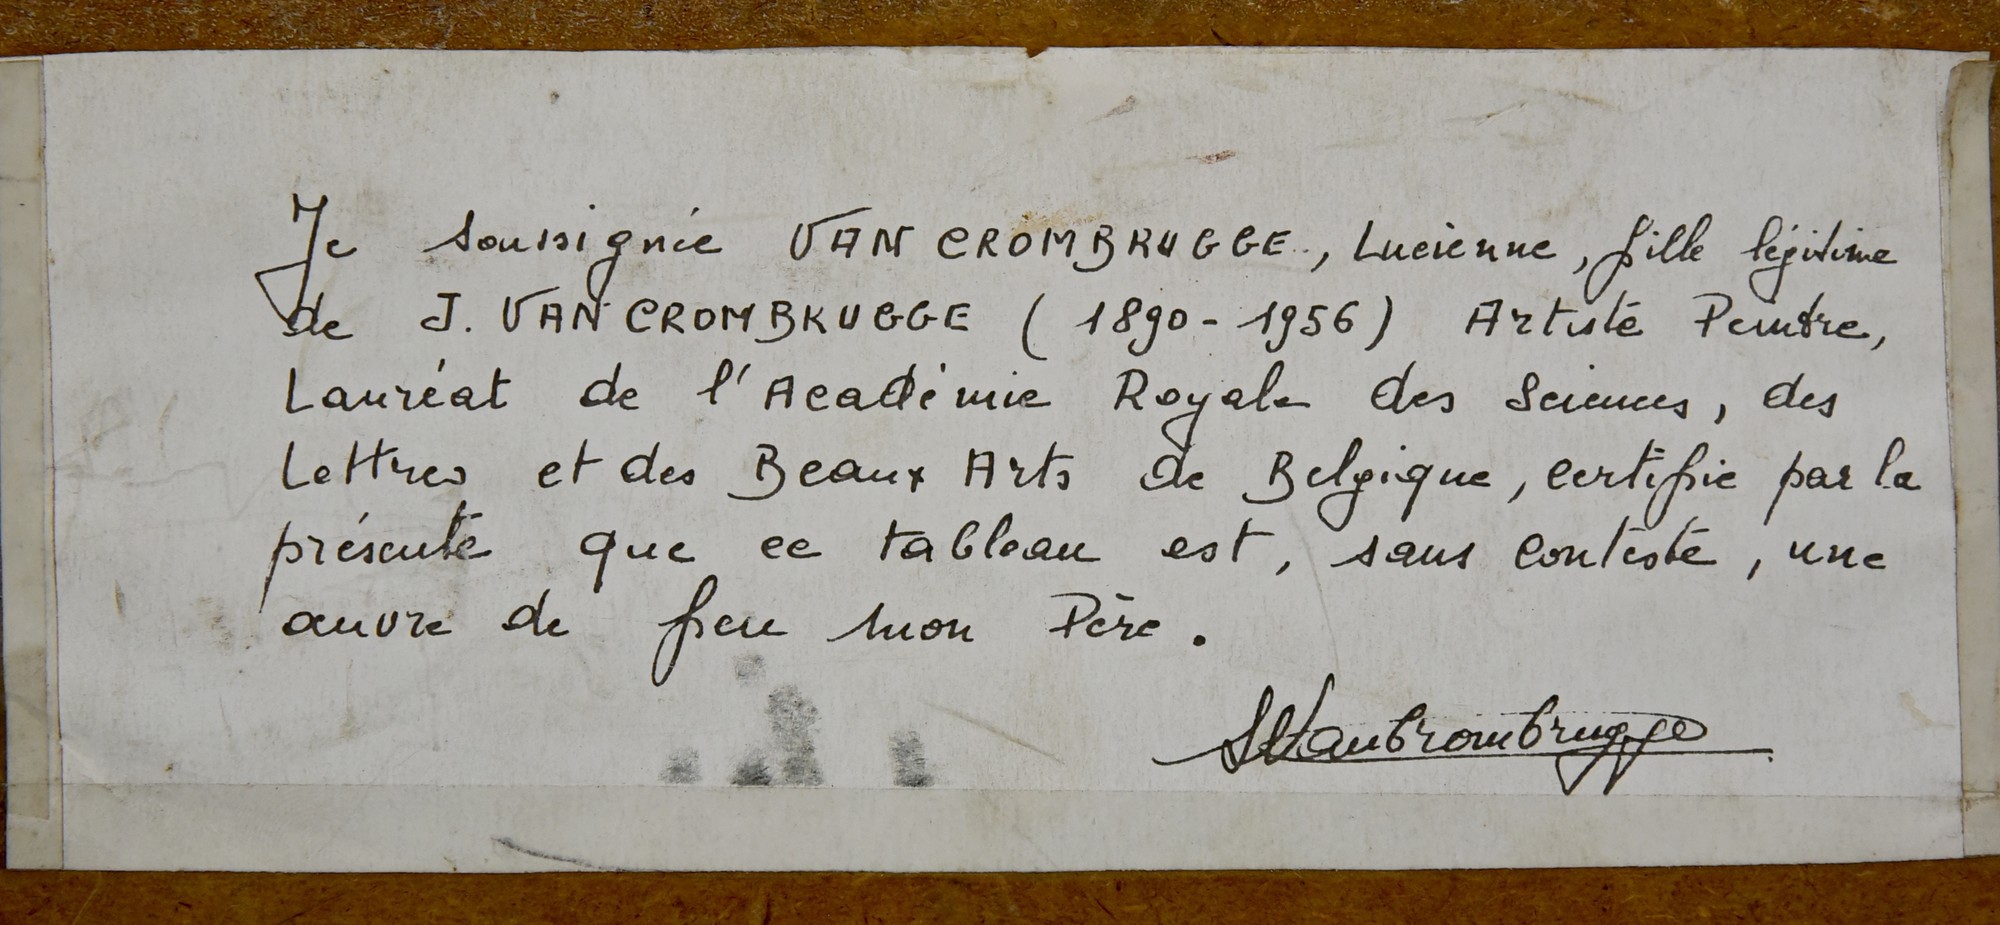 Je soussignée VAN CROMBRUGGE, Lucienne, fille légitime
de J. VAN CROMBRUGGE (1890-1956) Artiste Peintre,
Lauréat de l'Académie Royale des Sciences, des
Lettres et des Beaux Arts de Belgique, certifie par la
présente que ce tableau est, sans conteste, une
œuvre de feu mon Père.
LVanCrombrugge